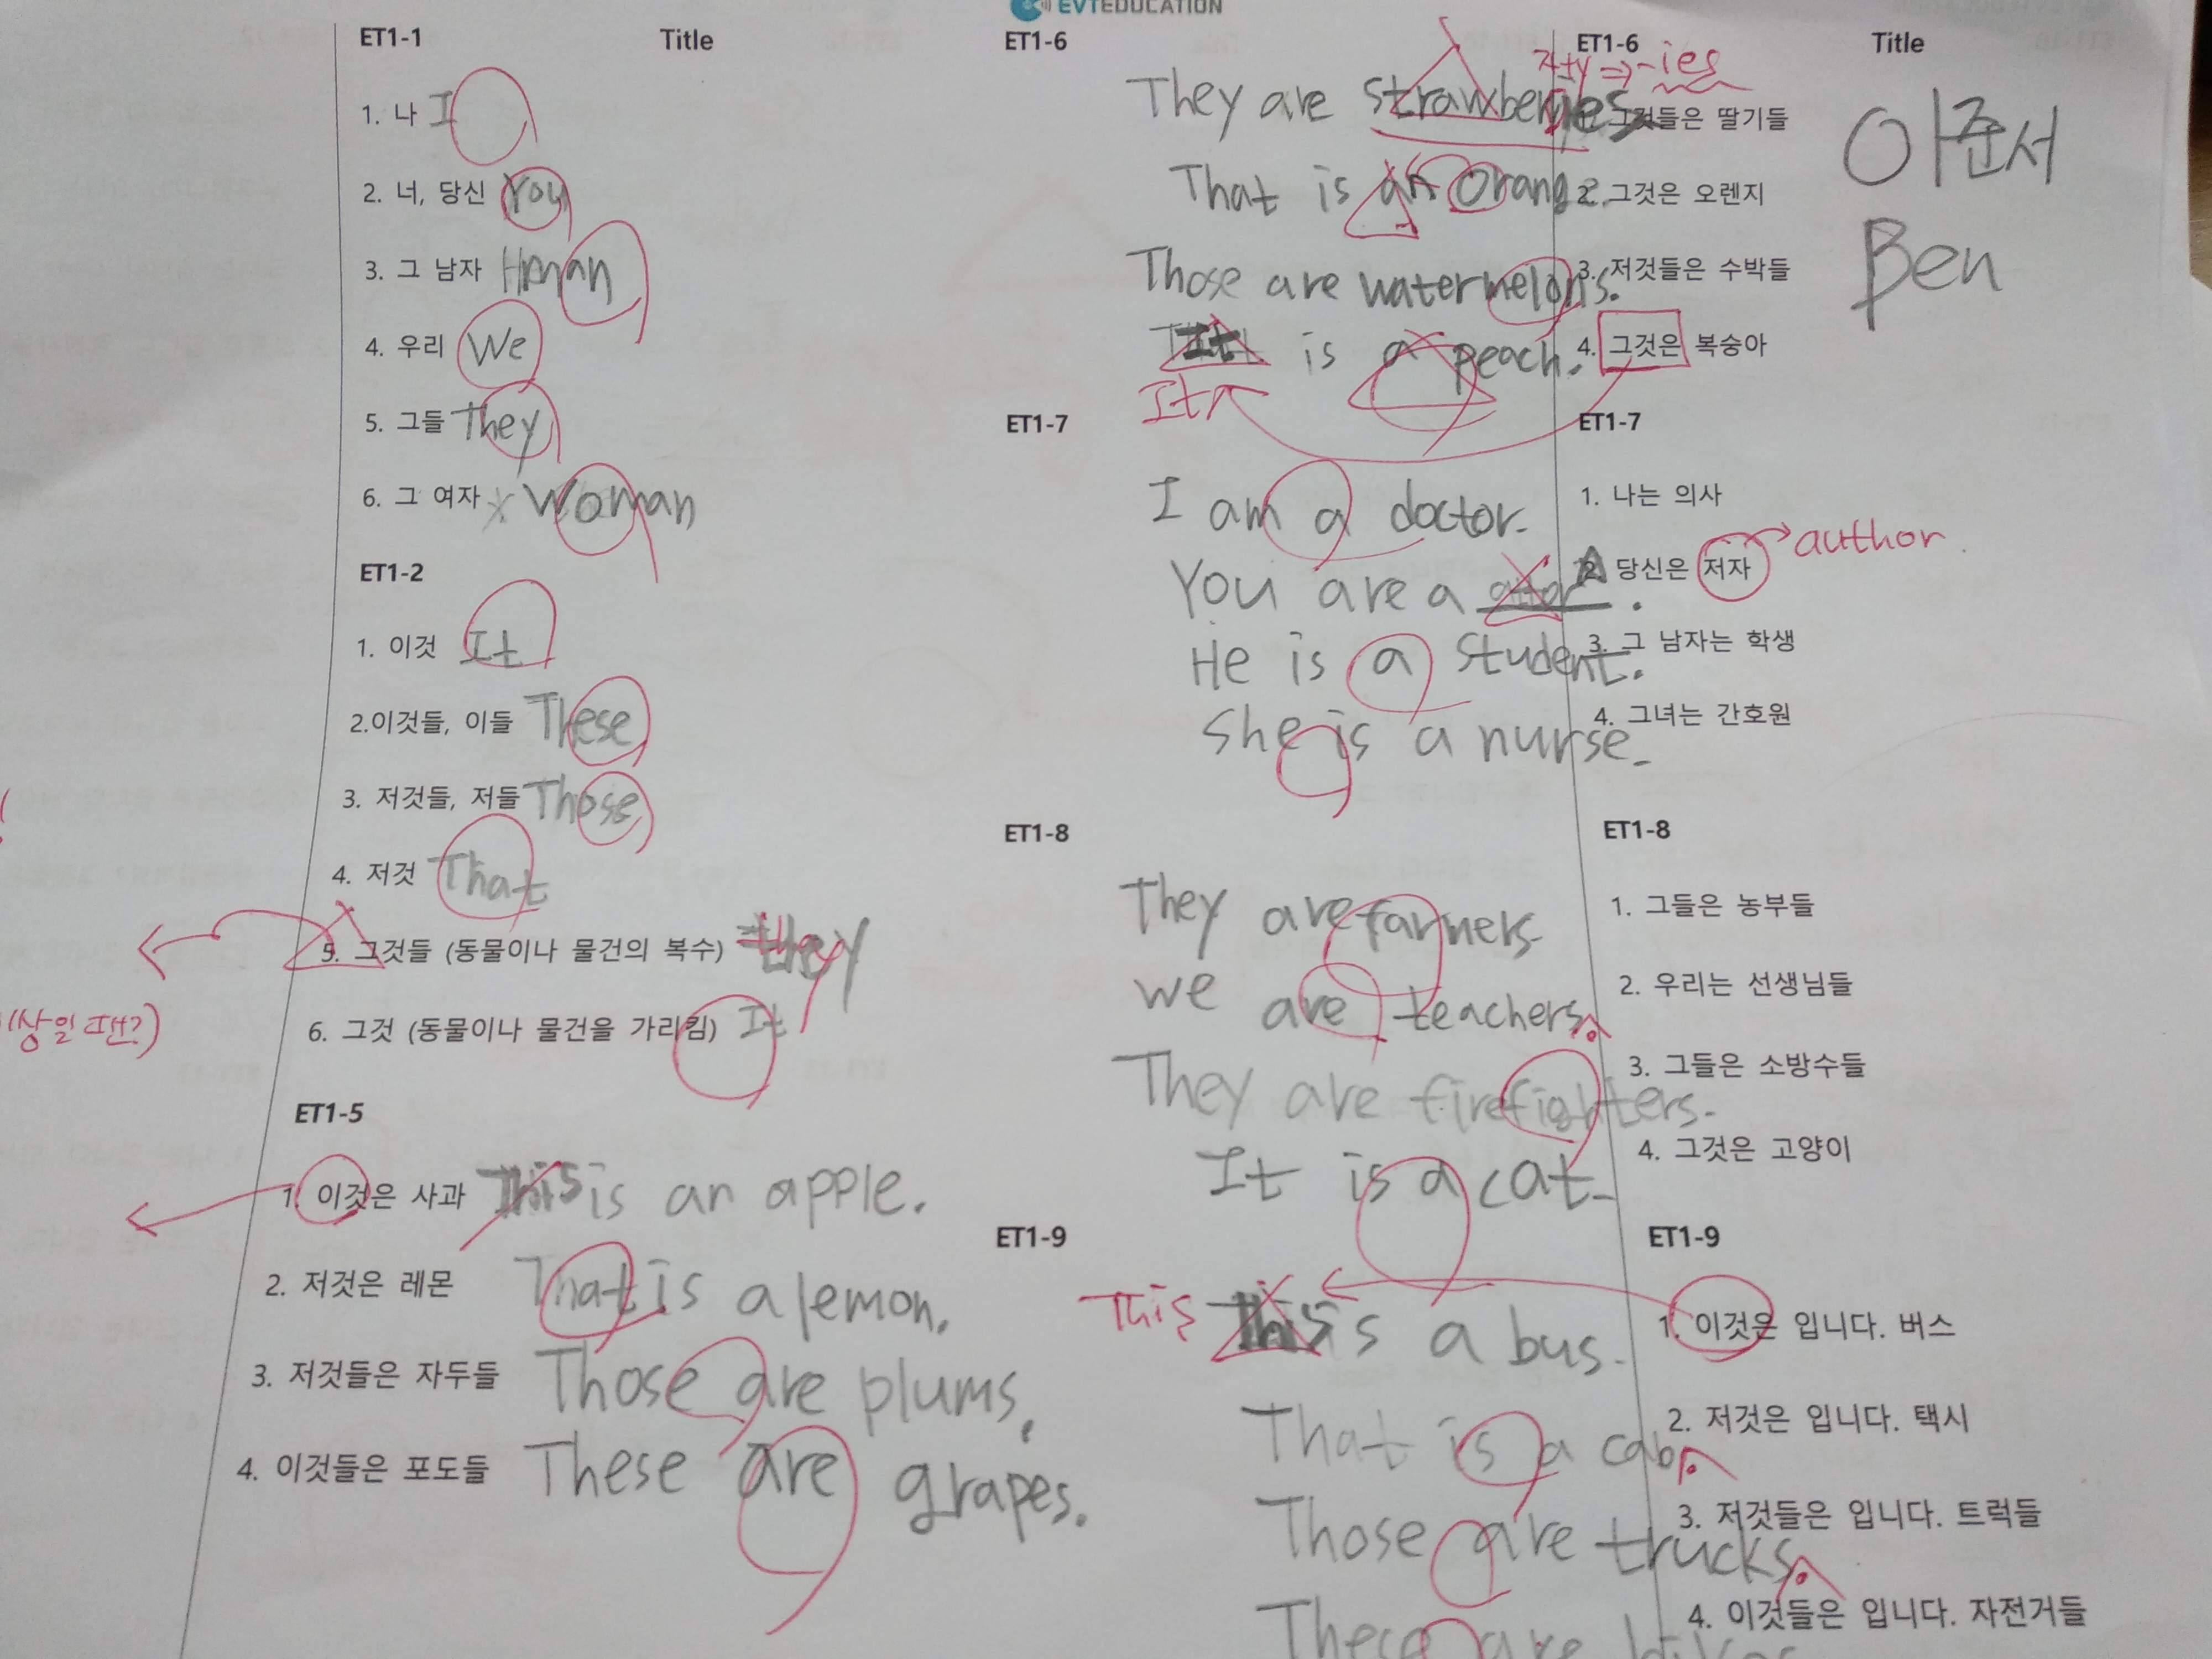 EVTEDUCATION
ET1-1 Title
1. 나 I
2. 너, 당신 You
3. 그 남자 Hman
4. 우리 We
5. 그들 They
6. 그 여자 x Woman
ET1-2
1. 이것 It
2.이것들, 이들 These
3. 저것들, 저들 Those
4. 저것 That
5. 그것들 (동물이나 물건의 복수) they
6. 그것 (동물이나 물건을 가리킴) It
상일 땐?)
ET1-5
1. 이것은 사과 This is an apple.
2. 저것은 레몬 That is a lemon.
3. 저것들은 자두들 Those are plums.
4. 이것들은 포도들 These are grapes.
ET1-6
They are strawberries
That is an orange.
Those are watermelons.
It is a peach.
It
ET1-7
I am a doctor.
You are a
He is a student.
She is a nurse.
ET1-8
They are farmers.
we are teachers.
They are firefighters.
It is a cat.
ET1-9
This This is a bus.
That is a cab.
Those are trucks.
These are bikes
ET1-6 Title
자+y ⇒ -ies
그것들은 딸기들
2. 그것은 오렌지
3. 저것들은 수박들
4. 그것은 복숭아
아준서
Ben
ET1-7
1. 나는 의사
2. 당신은 저자 → author
3. 그 남자는 학생
4. 그녀는 간호원
ET1-8
1. 그들은 농부들
2. 우리는 선생님들
3. 그들은 소방수들
4. 그것은 고양이
ET1-9
1. 이것은 입니다. 버스
2. 저것은 입니다. 택시
3. 저것들은 입니다. 트럭들
4. 이것들은 입니다. 자전거들